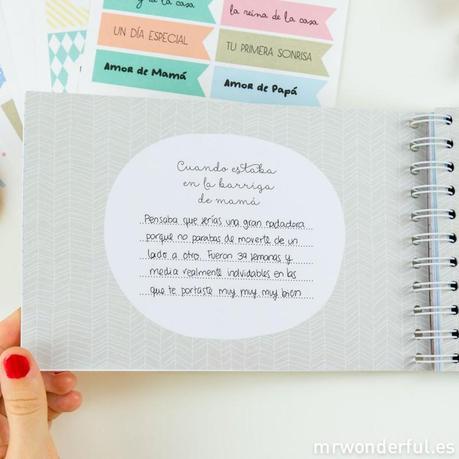 y de la casa
la reina de la casa
UN DÍA ESPECIAL
TU PRIMERA SONRISA
Amor de Mamá
Amor de Papá
Cuando estaba
en la barriga
de mamá
Pensaba que serías una gran nadadora
porque no parabas de moverte de un
lado a otro. Fueron 39 semanas y
media realmente inolvidables en las
que te portaste muy muy muy bien
mrwonderful.es